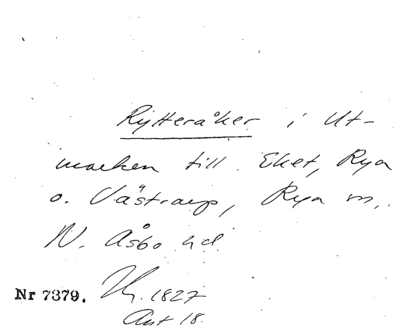 Rytteråker i Ut-
marken till Eket, Rya
o. Västraup, Rya m.,
N. Åsbo hd
Nr 7379. 1827
Akt 18.